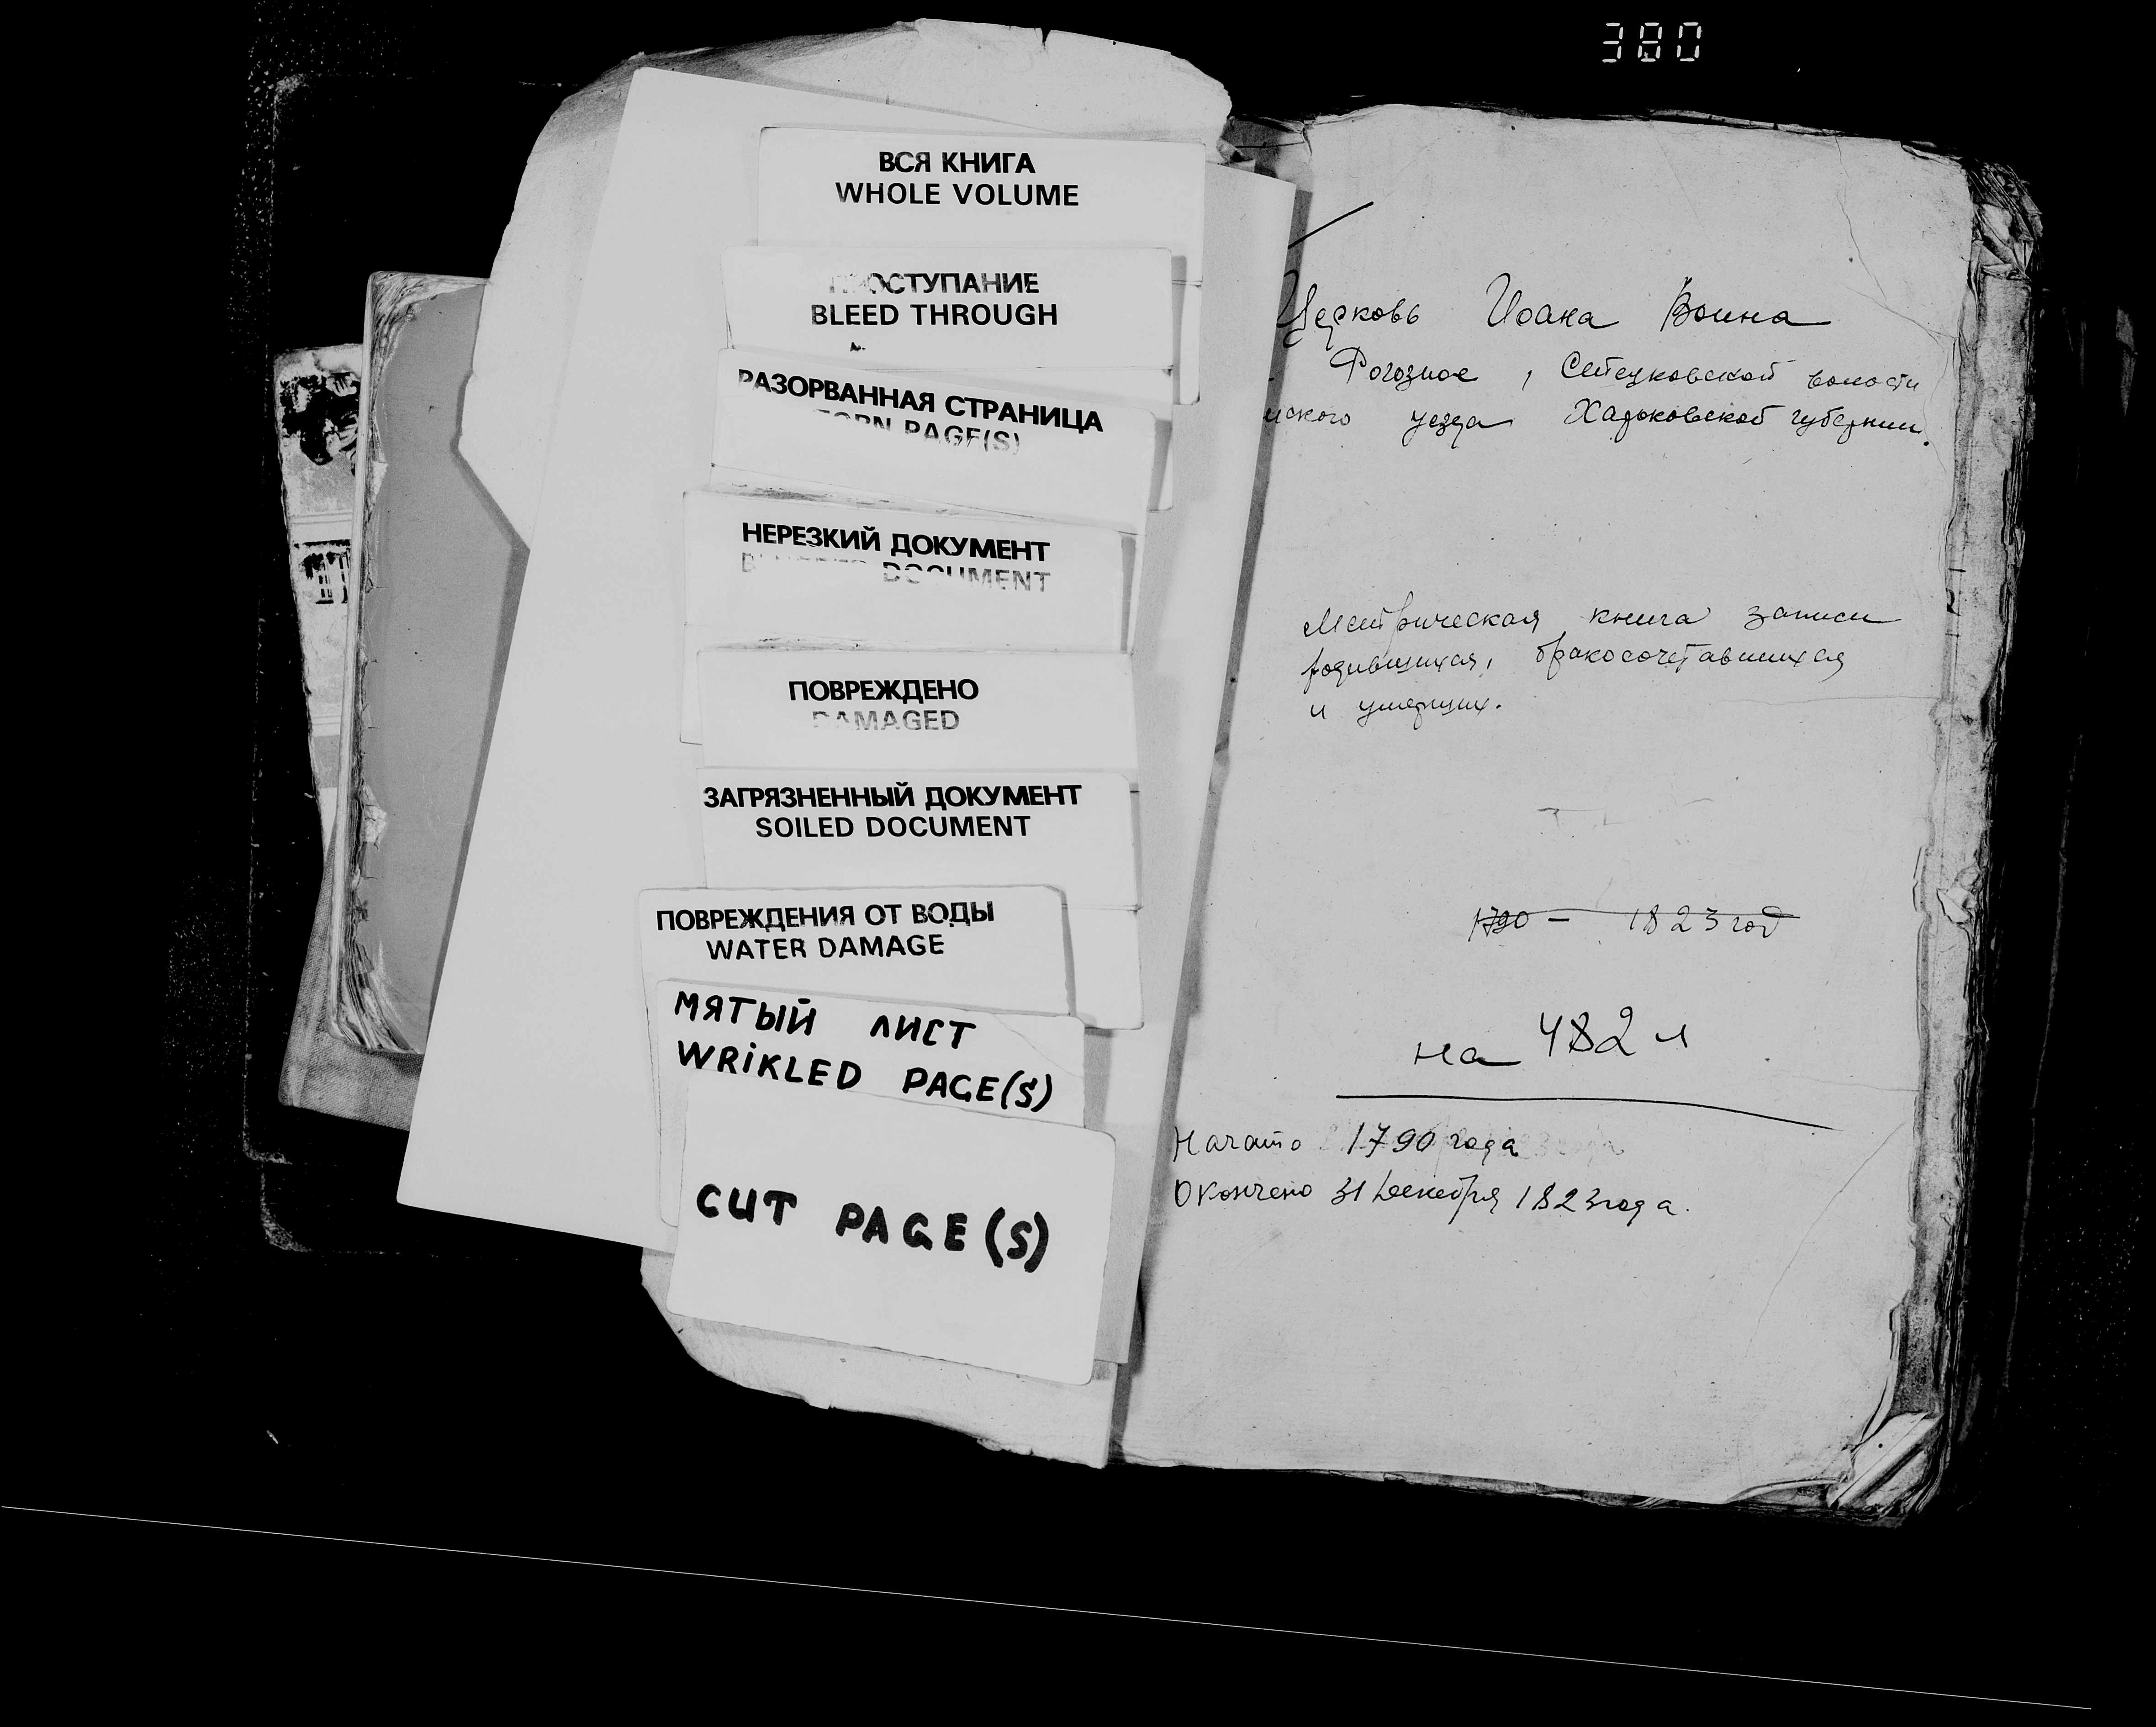 380
ВСЯ КНИГА
WHOLE VOLUME
ПРОСТУПАНИЕ
BLEED THROUGH
РАЗОРВАННАЯ СТРАНИЦА
TORN PAGE(S)
НЕРЕЗКИЙ ДОКУМЕНТ
DOCUMENT
ПОВРЕЖДЕНО
DAMAGED
ЗАГРЯЗНЕННЫЙ ДОКУМЕНТ
SOILED DOCUMENT
ПОВРЕЖДЕНИЯ ОТ ВОДЫ
WATER DAMAGE
МЯТЫЙ ЛИСТ
WRIKLED PAGE(S)
CUT PAGE(S)
Церковь Иоана Воина
, волости
уезда Харьковской губернии.
Метрическая книга записи
родившихся, бракосочетавшихся
и умерших.
1790 - 1823 год
на 482 л
Начато 1790 года
Окончено 31 Декабря 1823 года.